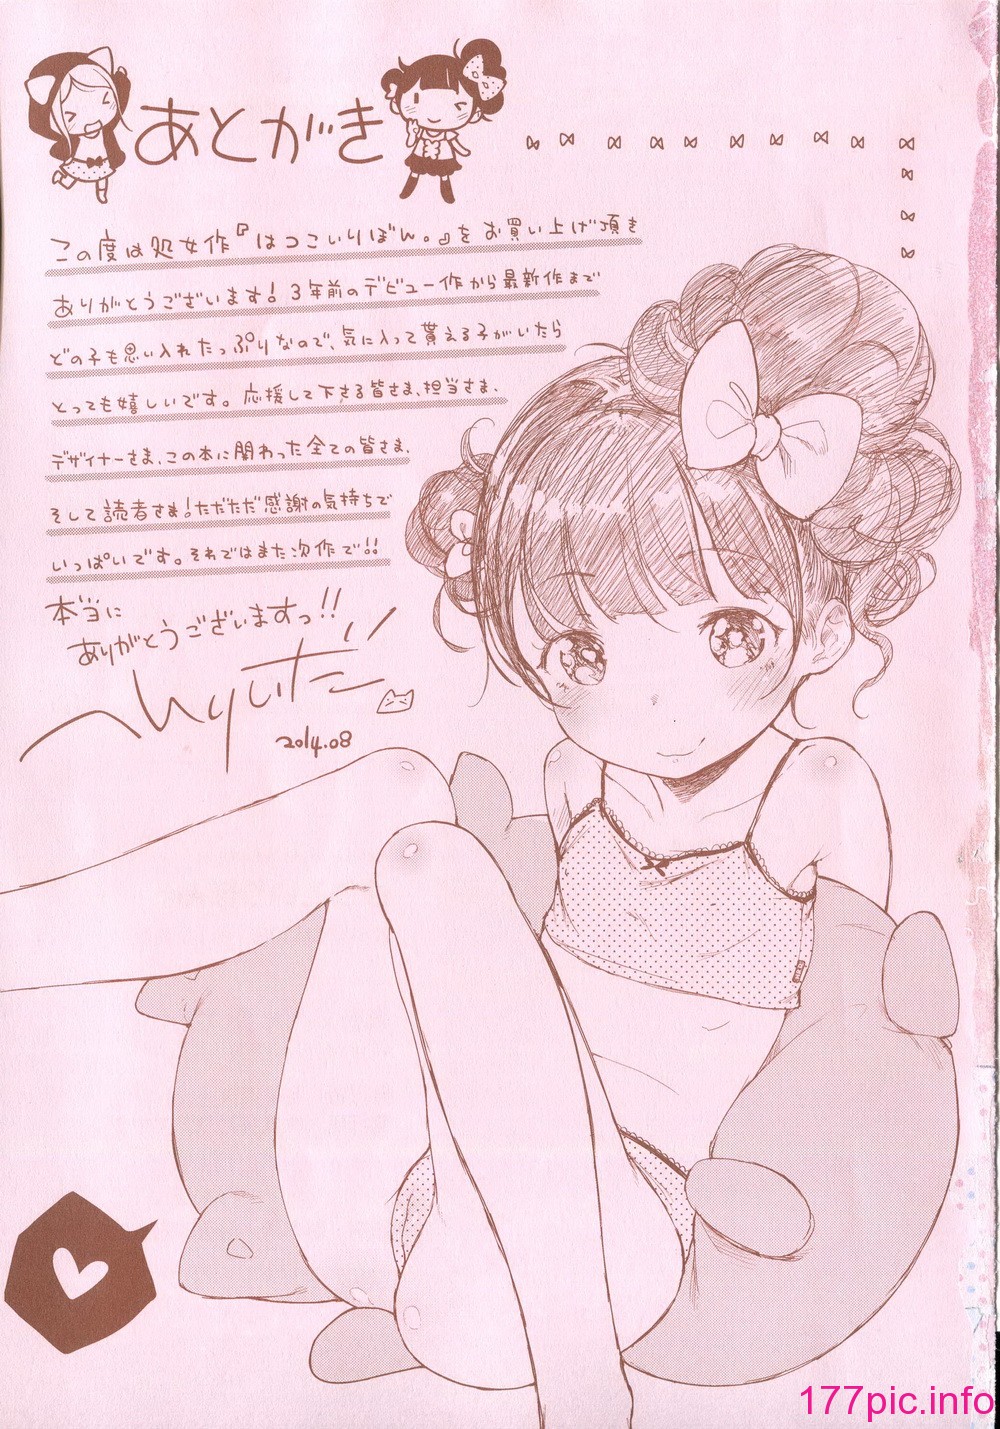 あとがき
この度は処女作『はつこいりぼん。』をお買い上げ頂き
ありがとうございます！3年前のデビュー作から最新作まで
どの子も思い入れたっぷりなので、気に入って貰える子がいたら
とっても嬉しいです。応援して下さる皆さま、担当さま、
デザイナーさま、この本に関わった全ての皆さま、
そして読者さま！ただただ感謝の気持ちで
いっぱいです。それではまた次作で!!
本当に
ありがとうございますっ!!
2014.08
177pic.info